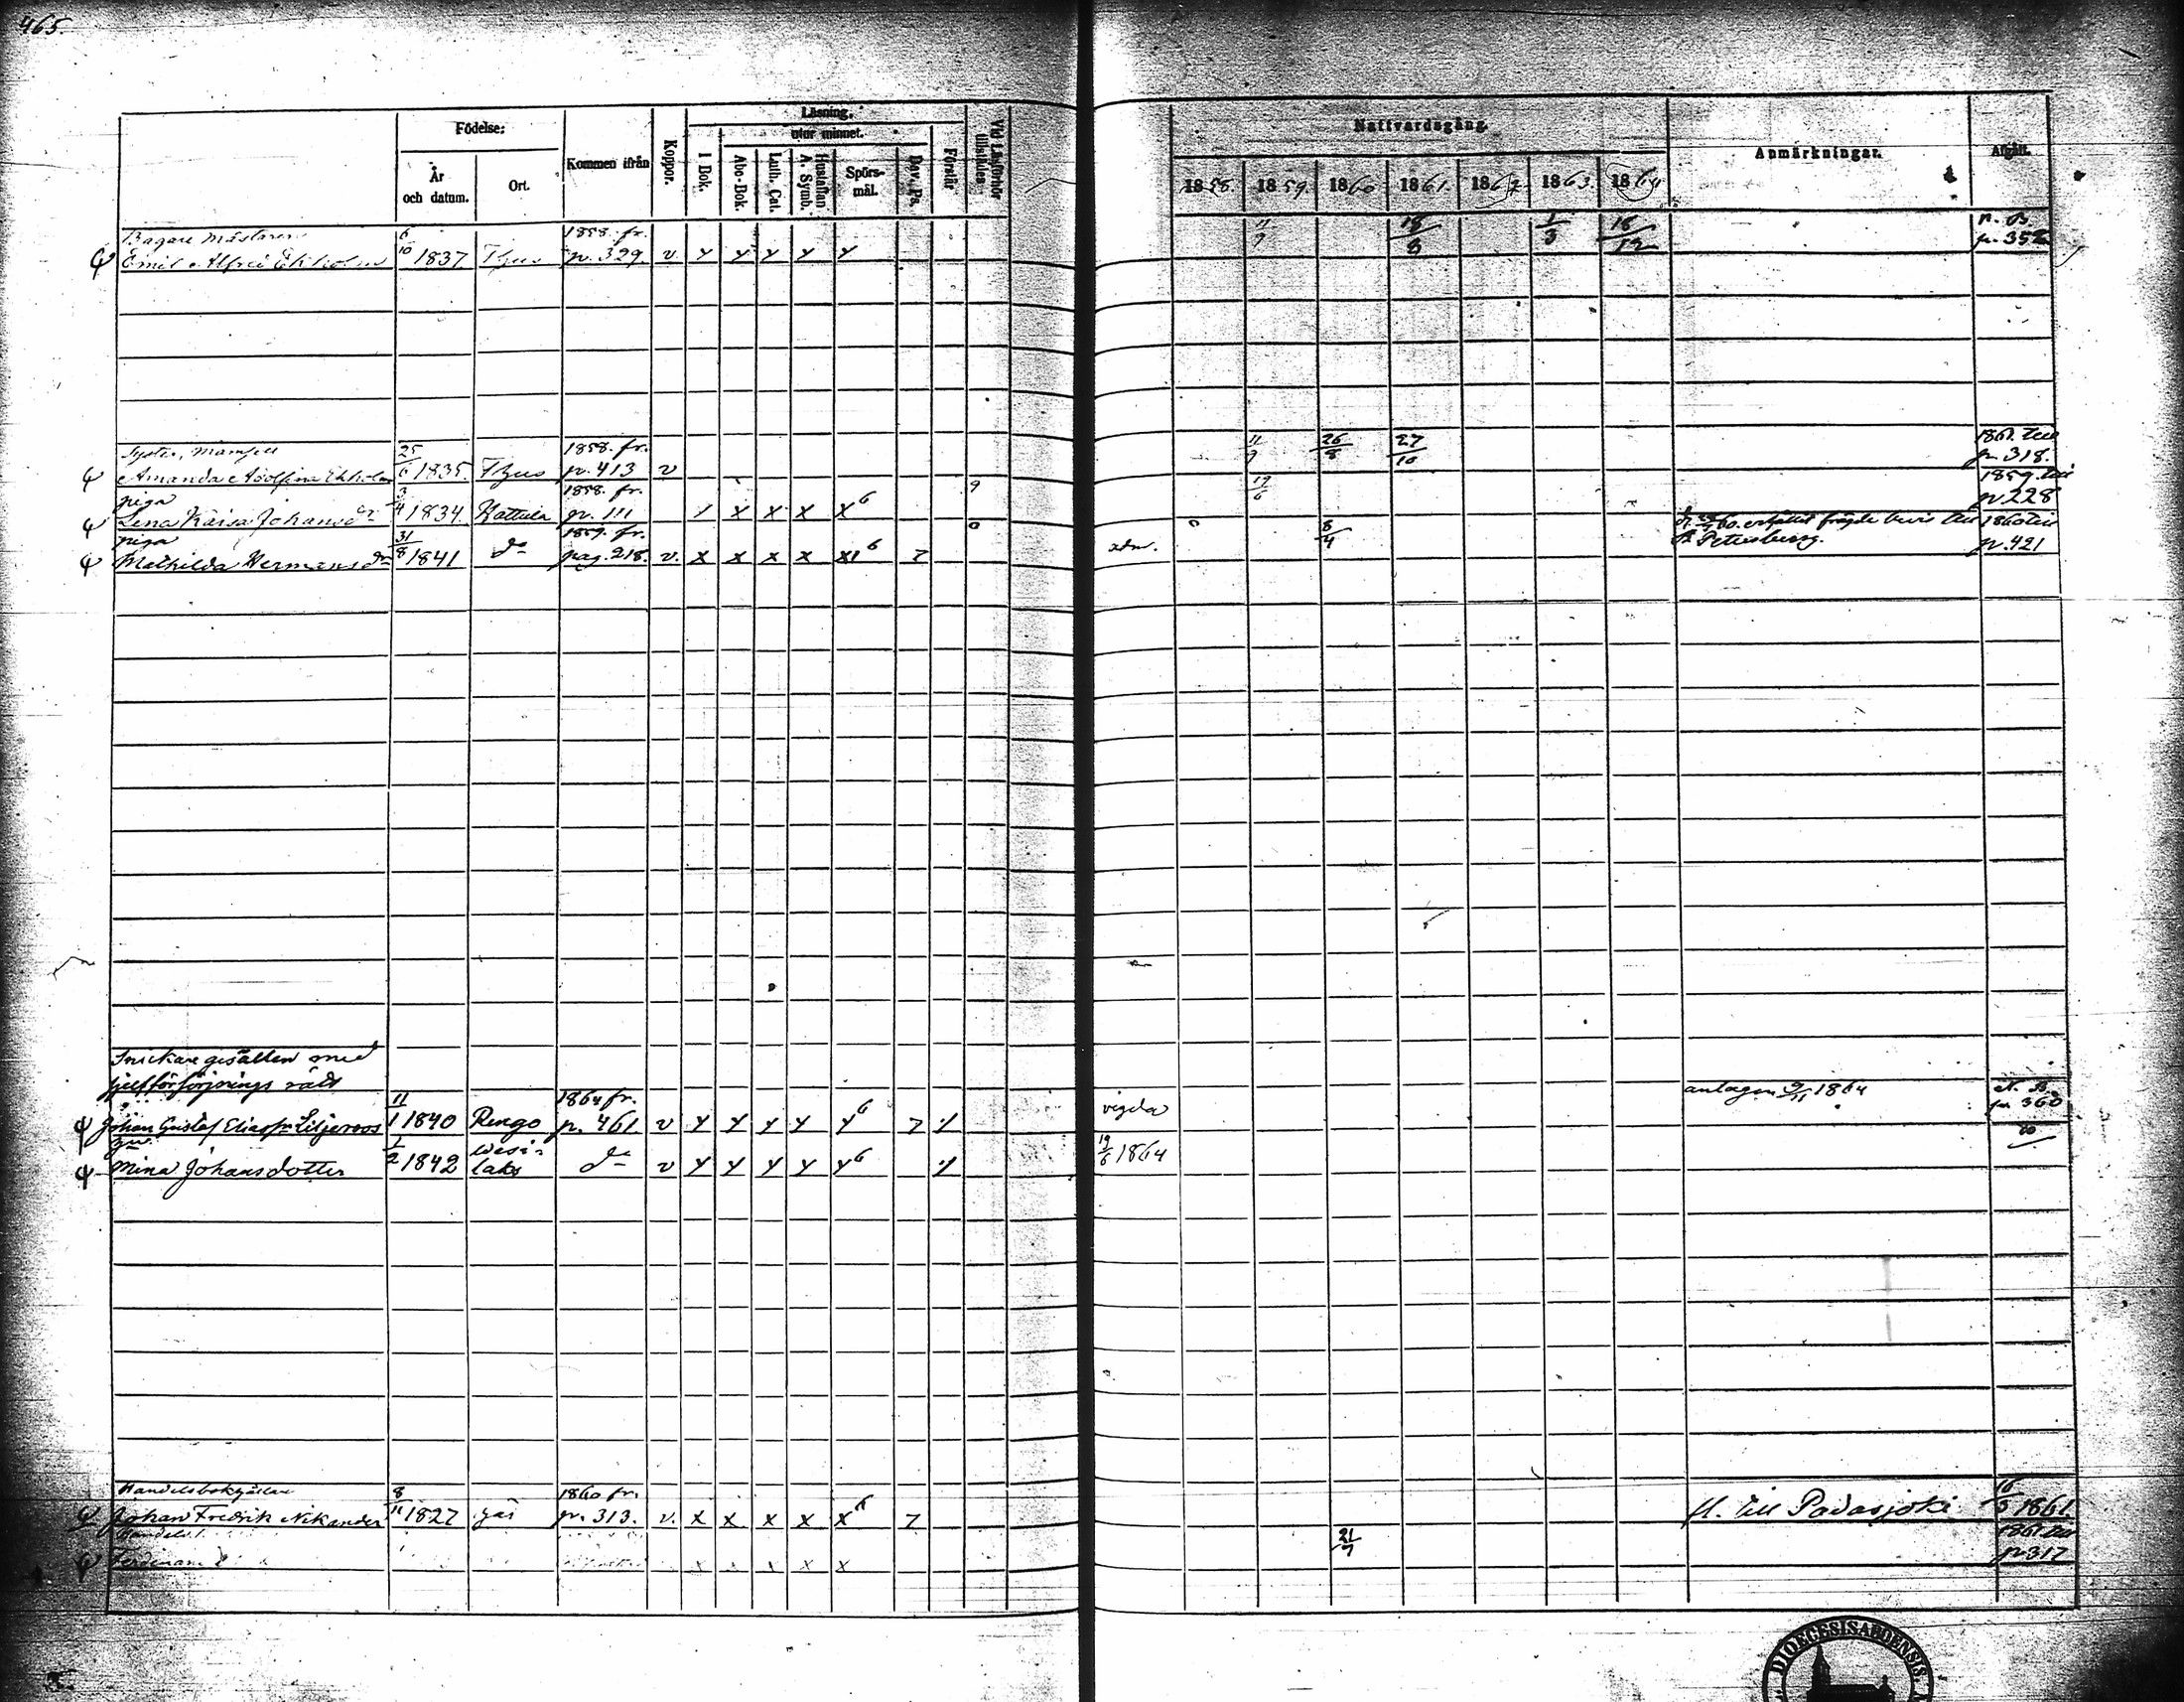 465.
Födelse:
År och datum.
Ort.
Kommen ifrån
Koppor.
Läsning,
utur minnet.
I Bok.
Abc-Bok.
Luth. Cat.
Hustaflan A. Symb.
Spörs-mål.
Dav. Ps.
Förstår
Vid Läsförhör tillstädes:
Nattvardsgång.
1858. 1859. 1860 1861. 1862 1863. 1864
Anmärkningar.
Afgått.
Bagare mästaren 6/10 1858. fr. 11/9 18/8 1/3 18/12 n. B.
Emil Alfred Ekholm 1837 Thus p. 329 v. y y y y y p. 352
Syster, Mamsell 25/6 1858. fr. 11/9 26/8 27/10 1861. till
Amanda Adolfina Ekholm 1835. Thus p. 413 v p. 318.
piga 3/4 1858. fr. 9 19/6 1859. till
Lena Kaisa Johansdr 1834. Hattula p. 111 / x x x x6 p. 228
piga 31/8 1859. fr. 0 0 8/4 60. erhållit frägde bevis till 1860 till
Mathilda Hermansdr 1841 do pag. 218. v. x x x x x16 7 adm. St Petersburg. p. 421
Snickare gesällen med
sjelfförsörjnings rätt antagen 1864 N. B.
11/1 1864 fr. p. 360
Johan Gustaf Eliasson Liljeroos 1840 Rengo p. 461 v y y y y y6 7 ٪ vigda
1/2 Wesi-
Mina Johansdotter 1842 laks do v y y y y y6 ٪ 19/6 1864
Handelsbokhållare 8/11 1860 fr. 16/3
Johan Fredrik Nikander 1827 p. 313. v. x x x x x6 7 fl. till Padasjoki 1861.
21/7 1861 till
Ferdinand x x x x x p. 317
DIOECESIS ABOENSIS